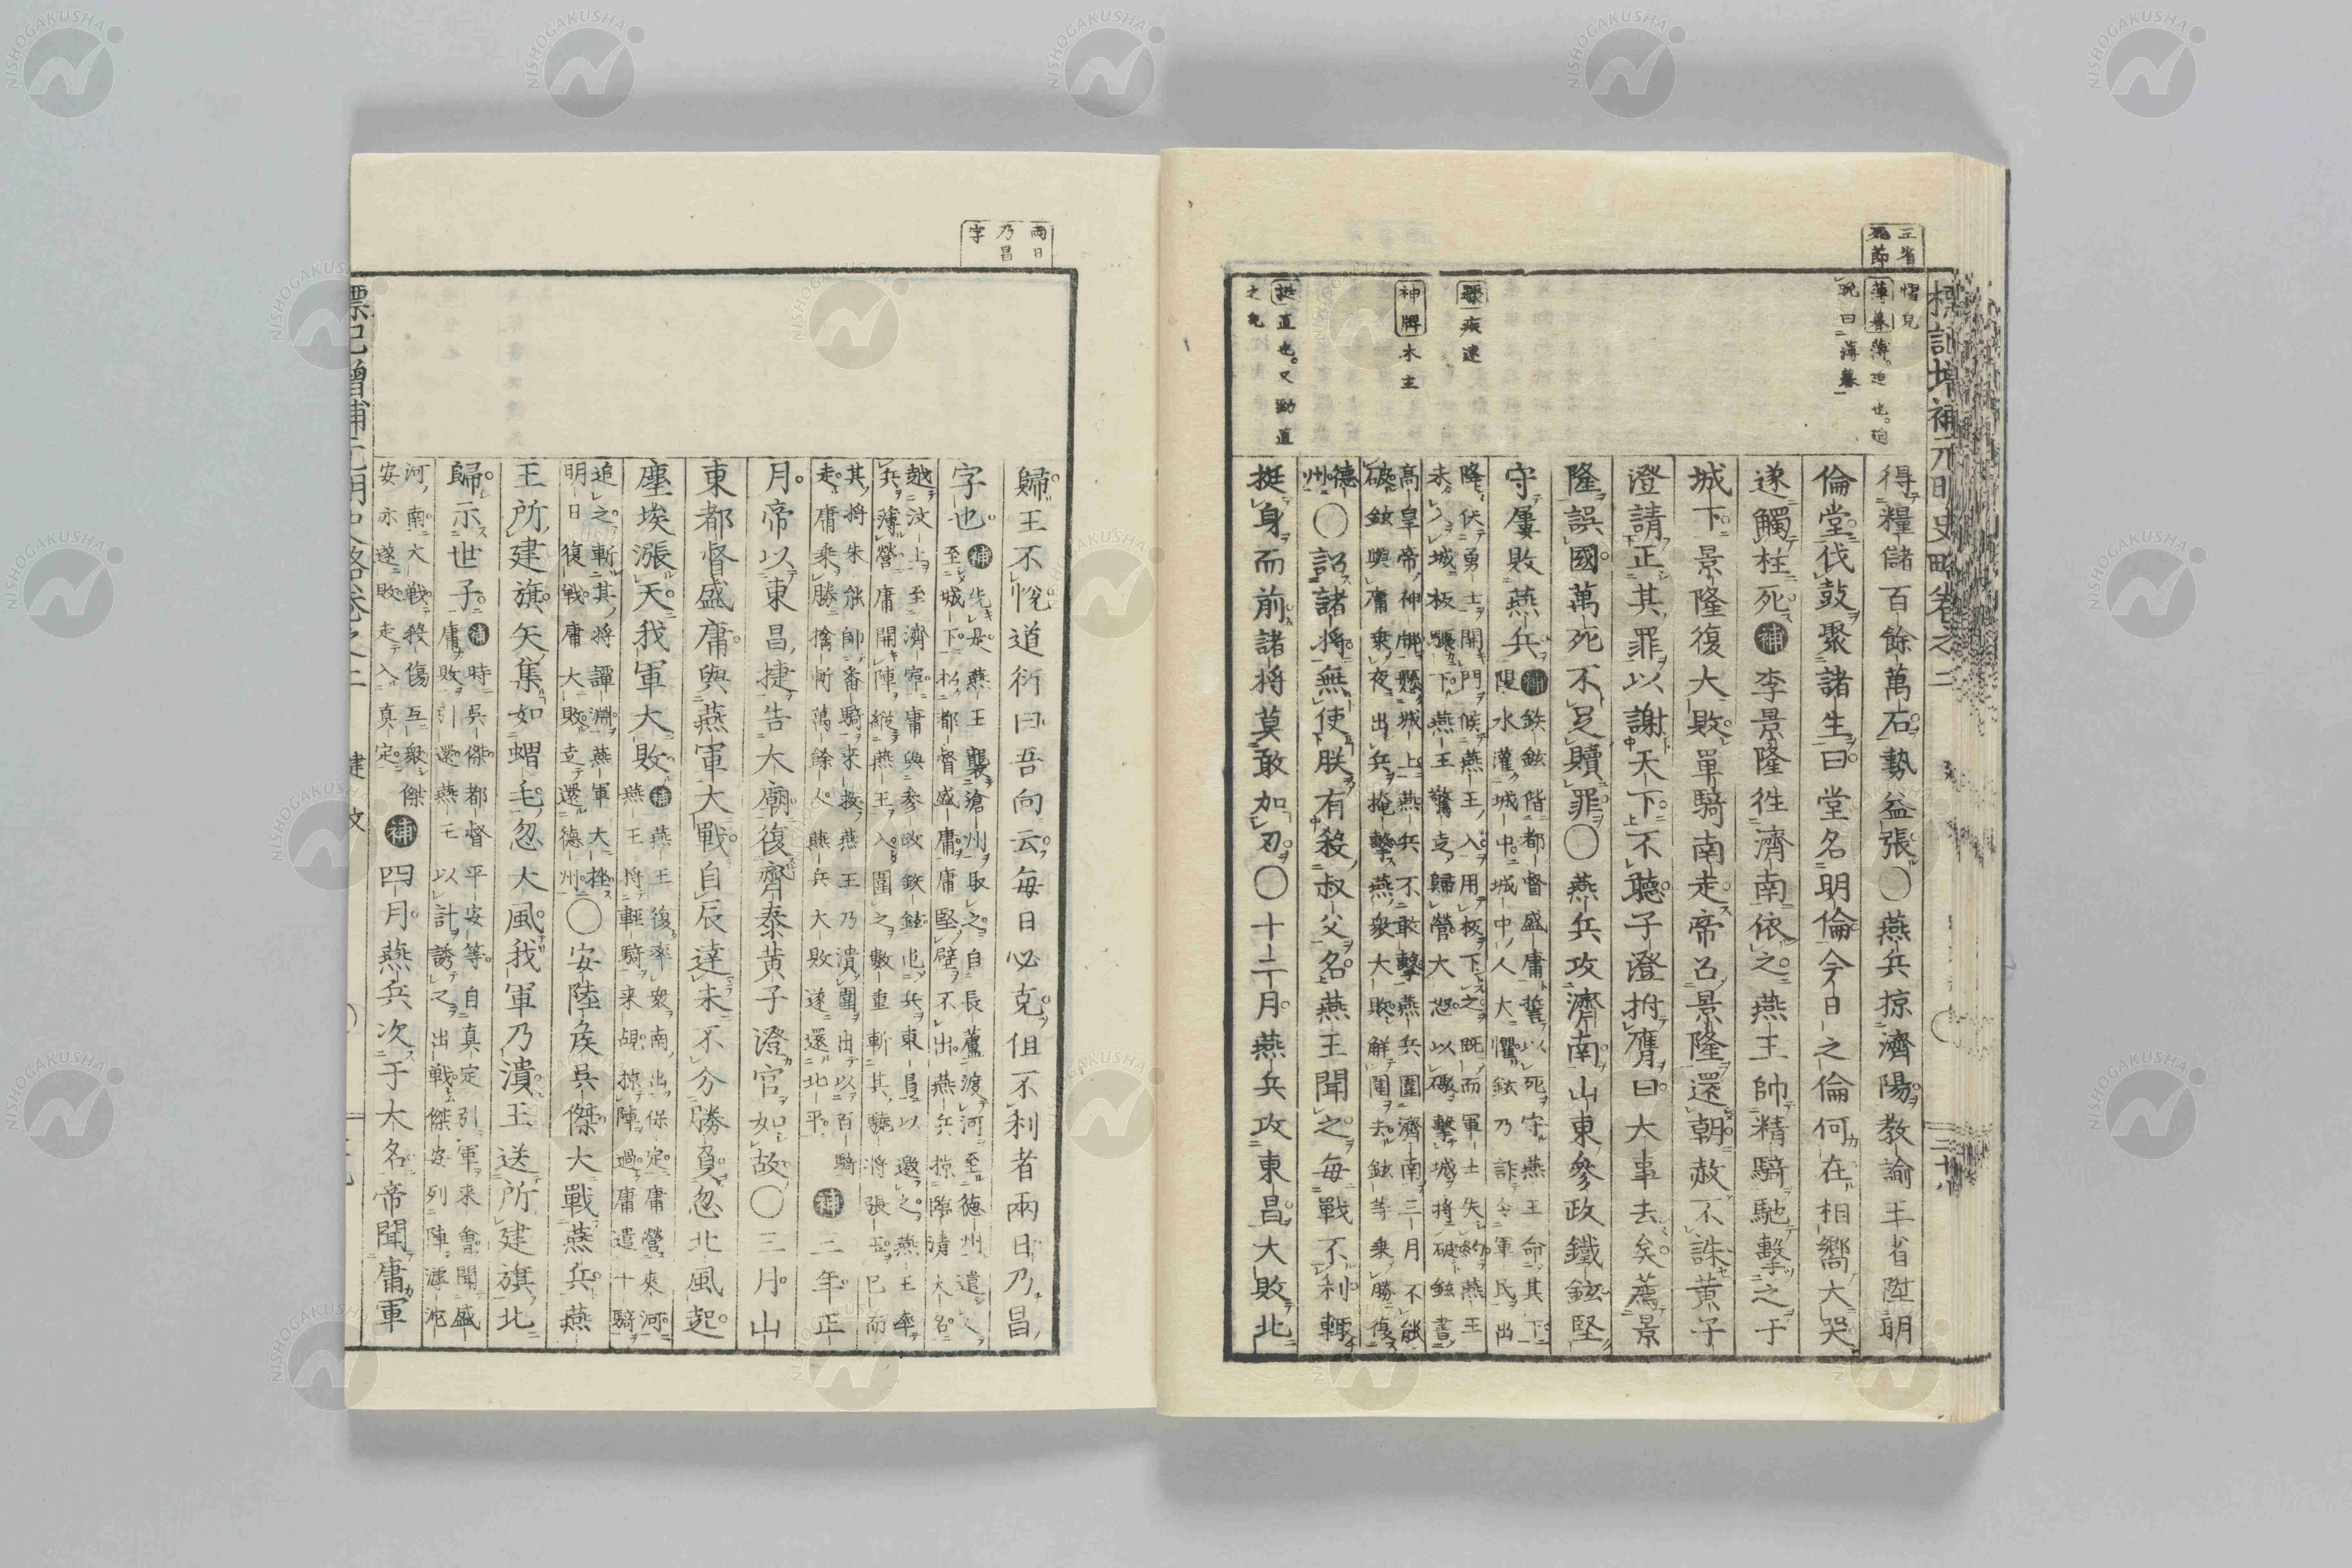 王省
死節
慴兒
薄暮薄。迫也。猶
既曰薄暮
驟疾速
神牌木主
挺直也。又勁直
之皃
得糧儲百餘萬石勢益張○燕兵掠濟陽教諭王省陞明
倫堂伐鼓聚諸生曰堂名明倫今日之倫何在相嚮大哭
遂觸柱死補李景隆徃濟南依之燕王帥精騎馳擊之于
城下景隆復大敗單騎南走帝召景隆還朝赦不誅黃子
澄請正其罪以謝天下不聽子澄拊膺曰大事去矣薦景
隆誤國萬死不足贖罪○燕兵攻濟南山東參政鐵鉉堅
守屢敗燕兵補鉄鉉偕都督盛庸誓以死守燕王命其下
隄水灌城中城中人大懼鉉乃詐令軍民出
降伏勇士開門候燕王入用板下之既而軍士失約燕王
未入城板驟下燕王驚走歸營大怒以礮擊城將破鉉書
高皇帝神牌懸城上燕兵不敢擊燕兵圍濟南三月不能
破鉉與庸乘夜出兵掩擊燕衆大敗解圍去鉉等乗勝復
德
州○詔諸將無使朕有殺叔父名燕王聞之毎戰不利輙
挺身而前諸將莫敢加刃○十二月燕兵攻東昌大敗北
標記增補元明史略卷之二
二十八
兩日
乃昌
字
歸王不悅道衍曰吾向云毎日必克但不利者兩日乃昌
字也補先是燕王襲滄州取之自長蘆渡河至德州遣人
至城下招都督盛庸庸堅壁不出燕兵掠臨清大名
越汶上至濟寧庸與參政鉄鉉也兵東昌以邀之燕王率
兵薄營庸開陣縱燕王入圍之數重斬其驍將張玉已而
其將朱能帥番騎来救燕王乃潰圍出以百騎
走庸乘勝擒斬萬餘人燕兵大敗遂還北平補二年正
月帝以東昌捷告大廟復齊泰黃子澄官如故○三月山
東都督盛庸與燕軍大戰自辰達未不分勝負忽北風起
塵埃漲天我軍大敗補燕王復率衆南出保定庸營夾河
燕王將輕騎来覘掠陣過庸遣千騎
追之斬其將譚淵燕軍大挫
明日復戰庸大敗走還德州○安陸矦吳傑大戰燕兵燕
王所建旗矢集如蝟毛忽大風我軍乃潰王送所建旗北
歸示世子補時吳傑都督平安等自真定引軍来會聞盛
庸敗引還燕王以計誘之出戰傑安列陣滹沱
河南大戰殺傷互衆傑
安亦遂敗走入真定補四月燕兵次于大名帝聞庸軍